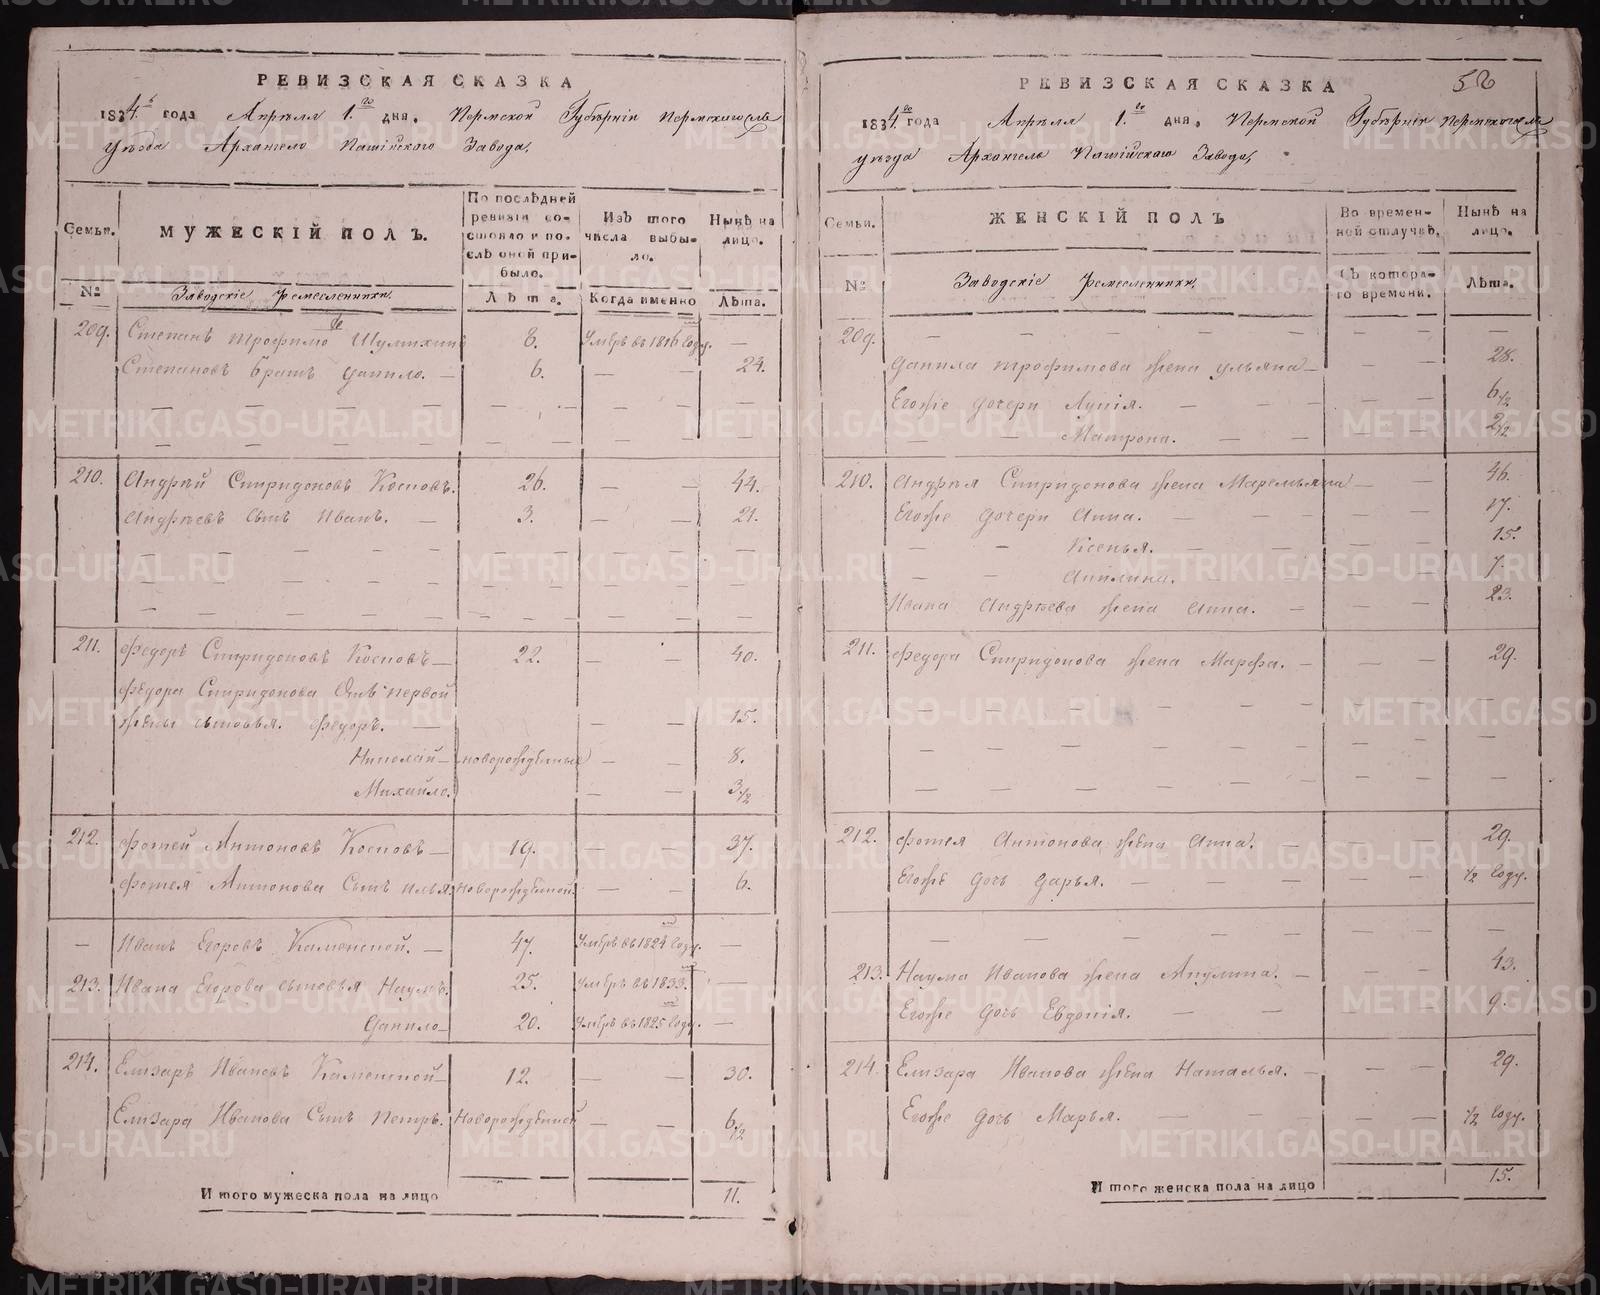 РЕВИЗСКАЯ СКАЗКА
1834 года Апрѣля 1го дня. Пермской Губѣрніи Пермскаго
уѣзда Архангело Пашійскаго Завода,
Семьи.
МУЖЕСКІЙ ПОЛЪ.
По послѣдней ревизіи состояло и послѣ оной прибыло.
Изъ того числа выбыло.
Нынѣ на лицо.
№
Заводскіе Ремесленники,
Лѣта.
Когда именно
Лѣта.
209. Степанъ Трофимо 8. Умѣръ въ 1816 году. —
Степановъ братъ Данило. — 6. — — 24.
210. Андрѣй Спиридоновъ Косповъ. 26. — — 44.
Андрѣевъ сынъ Иванъ. — 3. — — 21.
211. Федоръ Спиридоновъ Косповъ — 22. — — 40.
Федора Спиридонова Отъ первой
жены сыновья. Федоръ. — — — 15.
Николай — новорожденные — — 8.
Михайло. — — 3 1/2
212. Фотей Антоновъ Косповъ — 19. — — 37.
Фотея Антонова Сынъ Илья. новорожденной. — — 6.
— Иванъ Егоровъ Каменской. — 47. Умѣръ въ 1824 году. —
213. Ивана Егорова сыновья Наумъ. 25. Умѣръ въ 1833. —
Данило — 20. Умѣръ въ 1825 году. —
214. Елизаръ Ивановъ Каменской — 12. — — 30.
Елизара Иванова Сынъ Петръ. Новорожденной — — 6 1/2
И того мужеска пола на лицо 11.
РЕВИЗСКАЯ СКАЗКА
1834го года Апрѣля 1го дня. Пермской Губѣрніи Пермскаго
уѣзда Архангело Пашійскаго Завода,
Семьи.
ЖЕНСКІЙ ПОЛЪ
Во временной отлучкѣ.
Нынѣ на лицо.
№
Заводскіе Ремесленники,
Съ котораго времени.
Лѣта.
209. — — — — — — — —
Данила Трофимова жена Ульяна — — — 28.
Егоже дочери Лукія. — — — — — 6 1/2
— — Матрона. — — — — 2 1/2
210. Андрѣя Спиридонова жена Маремьяна — — — 46.
Егоже дочери Анна. — — — — — 17.
— — Ксенья. — — — — — 15.
— — Акилина. — — — — 7.
Ивана Андрѣева жена Анна. — — — 23.
211. Федора Спиридонова жена Марфа. — — — 29.
212. Фотея Антонова жена Анна. — — — 29.
Егоже дочь Дарья. — — — — — — 1/2 году.
213. Наума Иванова жена Акулина. — — — 43.
Егоже дочь Евдокія. — — — — — 9.
214. Елизара Иванова жена Наталья. — — — 29.
Егоже дочь Марья. — — — — — 1/2 году.
И того женска пола на лицо 15.
METRIKI.GASO-URAL.RU